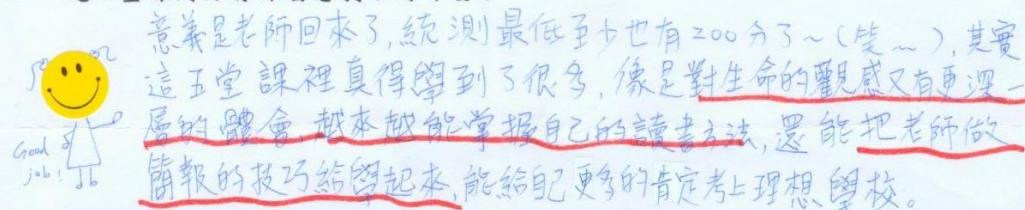 意義是老師回來了,統測最低至少也有200分了~(笑~),其實
這五堂課裡真得學到了很多,像是對生命的觀感又有更深一
層的體會,越來越能掌握自己的讀書方法,還能把老師做
簡報的技巧給學起來,能給自己更多的肯定考上理想學校。
Good
job!